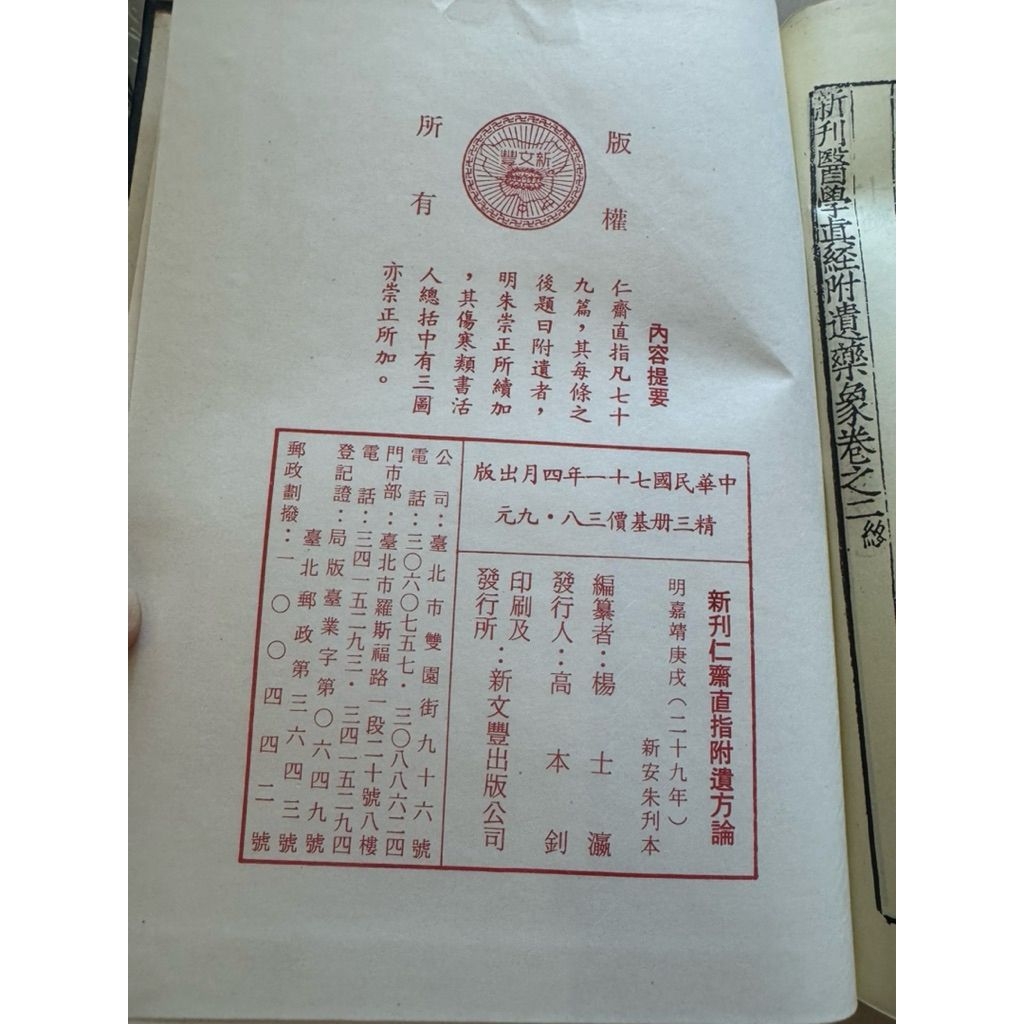 新刊醫學真経附遺藥象卷之二終
版權
所有
新文豐
內容提要
仁齋直指凡七十
九篇，其每條之
後題曰附遺者，
明朱崇正所續加
，其傷寒類書活
人總括中有三圖
亦崇正所加。
中華民國七十一年四月出版
精三册基價三八・九元
新刊仁齋直指附遺方論
明嘉靖庚戌（二十九年）
新安朱刊本
編纂者：楊士瀛
發行人：高本釗
印刷及
發行所：新文豐出版公司
公司：臺北市雙園街九十六號
電話：三〇六〇七五七・三〇八八六二四
門市部：臺北市羅斯福路一段二十號八樓
電話：三四一五二九三・三四一五二九四
登記證：局版臺業字第〇六四九號
臺北郵政第三六四三號
郵政劃撥：一〇〇四四二號